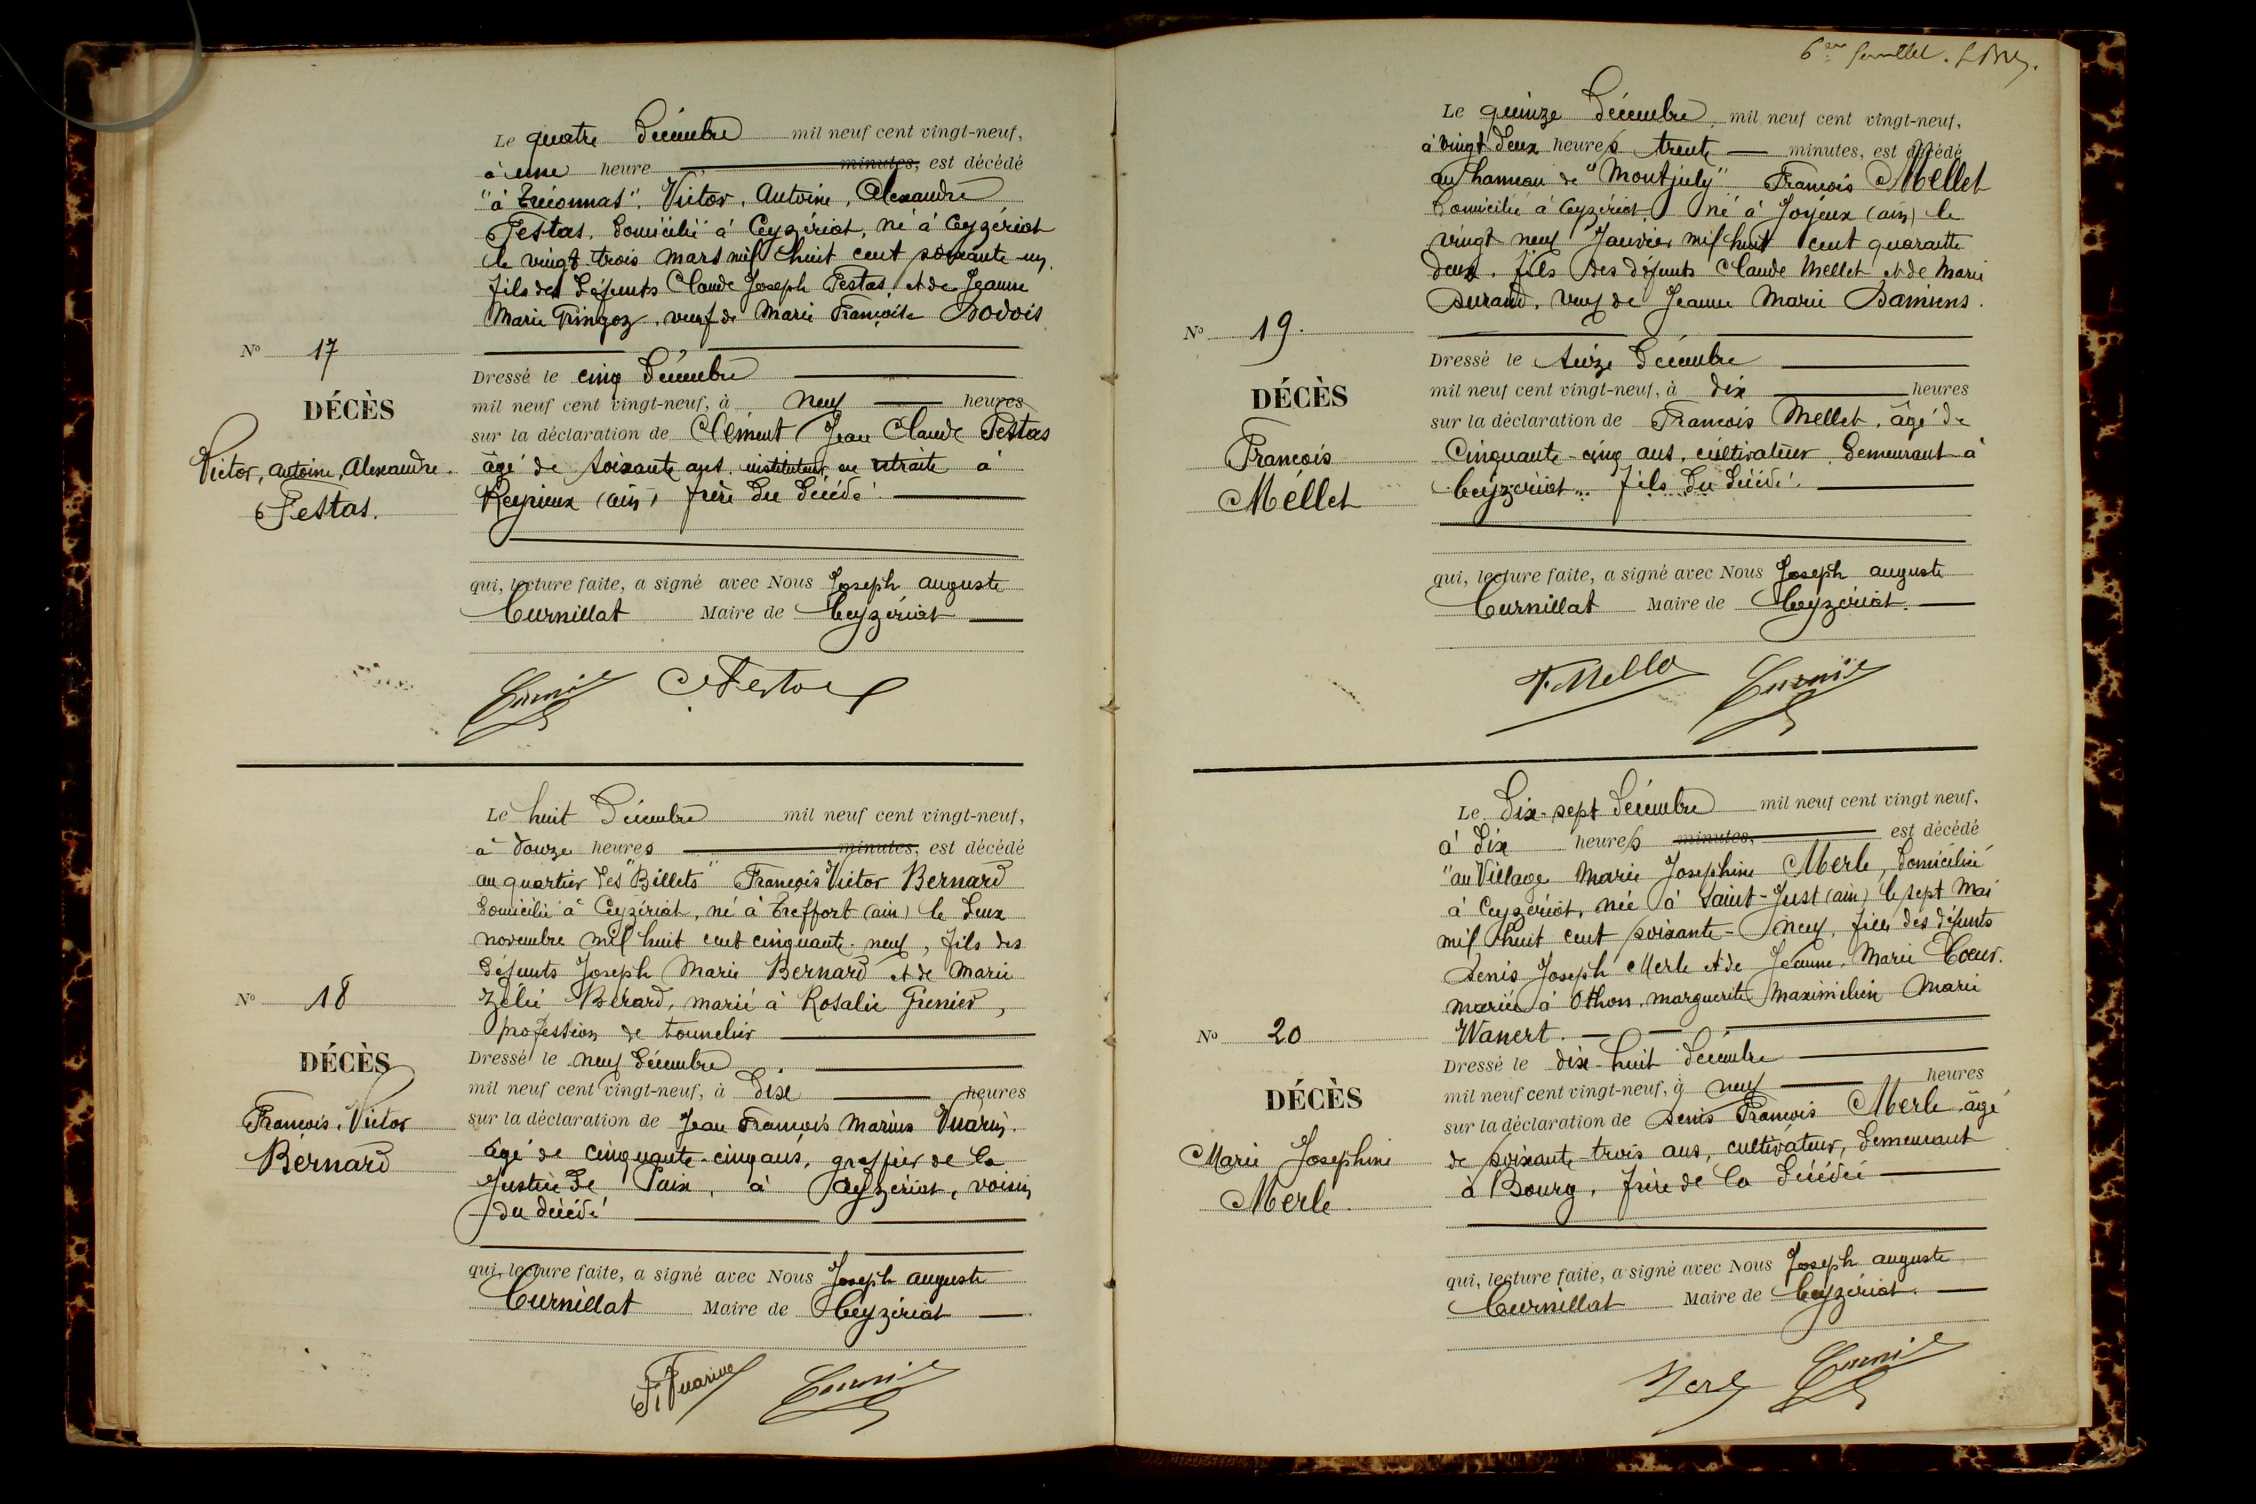 Le quatre Décembre mil neuf cent vingt-neuf,
à une heure minutes, est décédé
"à Tréconnas". Victor, Antoine, Alexandre
Festas. domicilié à Ceyzériat, né à Ceyzériat
le vingt trois mars mil huit cent soixante-un,
fils des défunts Claude Joseph Festas et de Jeanne
Marie Gringoz, veuf de Marie Françoise Dodois
Nº 17
Dressé le cinq Décembre
mil neuf cent vingt-neuf, à neuf heures
DÉCÈS
sur la déclaration de Clément Jean Claude Festas
Victor, Antoine, Alexandre.
âgé de soixante ans, instituteur en retraite à
Festas.
Reyrieux (ain), frère du décédé.
qui, lecture faite, a signé avec Nous Joseph auguste
Curnillat Maire de Ceyzériat
Le huit Décembre mil neuf cent vingt-neuf,
à douze heures minutes, est décédé
au quartier des "Billets" François Victor Bernard
domicilié à Ceyzériat, né à Treffort (ain) le deux
novembre mil huit cent cinquante-neuf, fils des
défunts Joseph Marie Bernard et de Marie
Nº 18
Zélie Bérard, marié à Rosalie Grenier,
profession de tonnelier
DÉCÈS
Dressé le neuf Décembre
mil neuf cent vingt-neuf, à dix heures
François, Victor
sur la déclaration de Jean François Marius Vuarin.
Bernard
âgé de cinquante-cinq ans, greffier de la
Justice de Paix, à Ceyzériat, voisin
du décédé
qui, lecture faite, a signé avec Nous Joseph auguste
Curnillat Maire de Ceyzériat
6me feuillet.
Le quinze Décembre mil neuf cent vingt-neuf,
à vingt deux heures trente minutes, est décédé
au hameau de "Montjuly" François Mellet
domicilié à Ceyzériat, né à Joyeux (ain) le
vingt neuf Janvier mil huit cent quarante
deux. fils des défunts Claude Mellet et de Marie
Durand, veuf de Jeanne Marie Damiens.
Nº 19.
Dressé le seize Décembre
mil neuf cent vingt-neuf, à dix heures
DÉCÈS
sur la déclaration de François Mellet, âgé de
François
cinquante-cinq ans, cultivateur, demeurant à
Méllet
Ceyzériat, fils du décédé.
qui, lecture faite, a signé avec Nous Joseph auguste
Curnillat Maire de Ceyzériat.
Le Dix-sept Décembre mil neuf cent vingt neuf,
à dix heures minutes, est décédé
"au Village Marie Joséphine Merle, domiciliée
à Ceyzériat, née à Saint-Just (ain) le sept Mai
mil huit cent soixante-neuf, fille des défunts
Denis Joseph Merle et de Jeanne Marie Coeur.
mariée à Othon, marguerite Maximilien Marie
Nº 20
Wanert.
Dressé le dix-huit Décembre
mil neuf cent vingt-neuf, à neuf heures
DÉCÈS
sur la déclaration de Denis François Merle, âgé
Marie Joséphine
de soixante-trois ans, cultivateur, demeurant
Merle.
à Bourg, frère de la décédée
qui, lecture faite, a signé avec Nous Joseph auguste
Curnillat Maire de Ceyzériat.